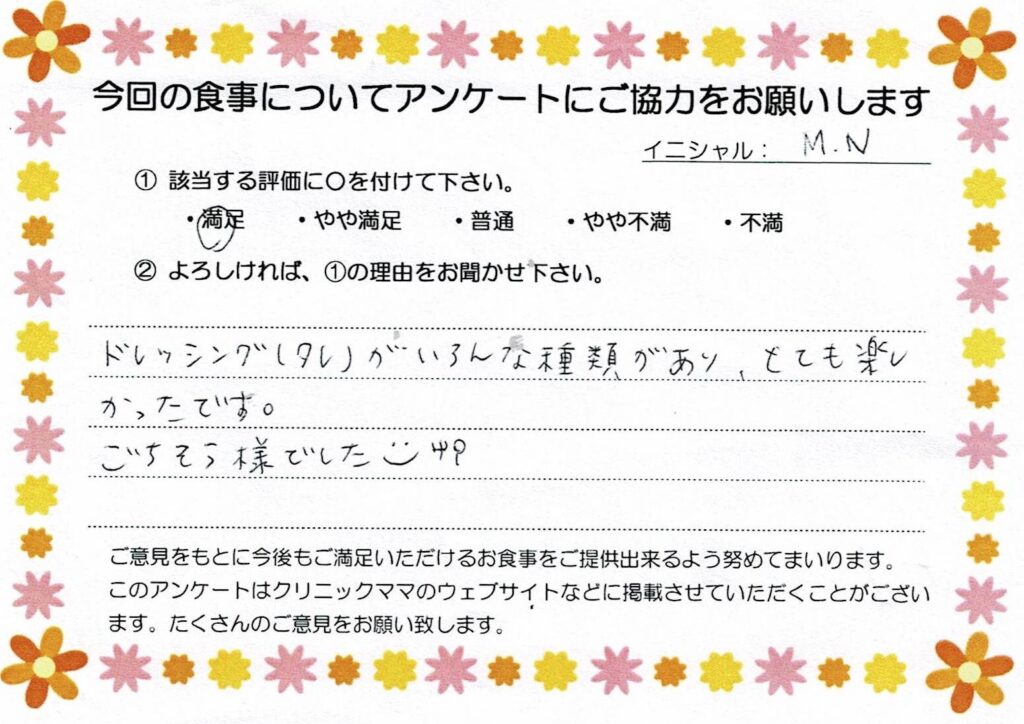 今回の食事についてアンケートにご協力をお願いします
イニシャル： M.N
① 該当する評価に〇を付けて下さい。
・満足 ・やや満足 ・普通 ・やや不満 ・不満
② よろしければ、①の理由をお聞かせ下さい。
ドレッシング(タレ)がいろんな種類があり、とても楽し
かったです。
ごちそう様でした
ご意見をもとに今後もご満足いただけるお食事をご提供出来るよう努めてまいります。
このアンケートはクリニックママのウェブサイトなどに掲載させていただくことがござい
ます。たくさんのご意見をお願い致します。